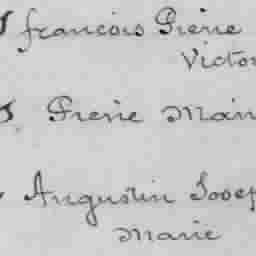 françois Pierre
Victor
Pierre Marie
Augustin Josep
Marie